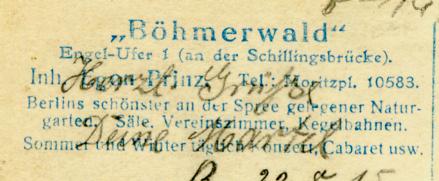 „Böhmerwald“
Engel-Ufer 1 (an der Schillingsbrücke).
Inh. Egon Prinz Tel.: Moritzpl. 10583.
Herzl. Grüße
Berlins schönster an der Spree gelegener Natur-
garten. Säle, Vereinszimmer, Kegelbahnen.
Deine
Sommer und Winter täglich Konzert, Cabaret usw.